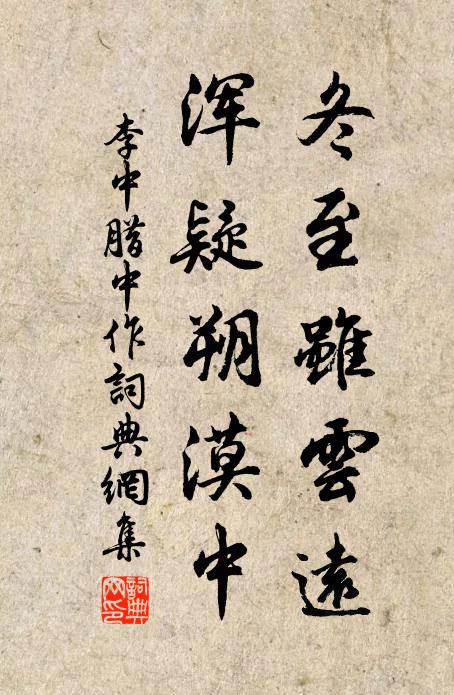 冬至雖雲遠
浑疑朔漠中
李中腊中作詞典網集
詞典網印